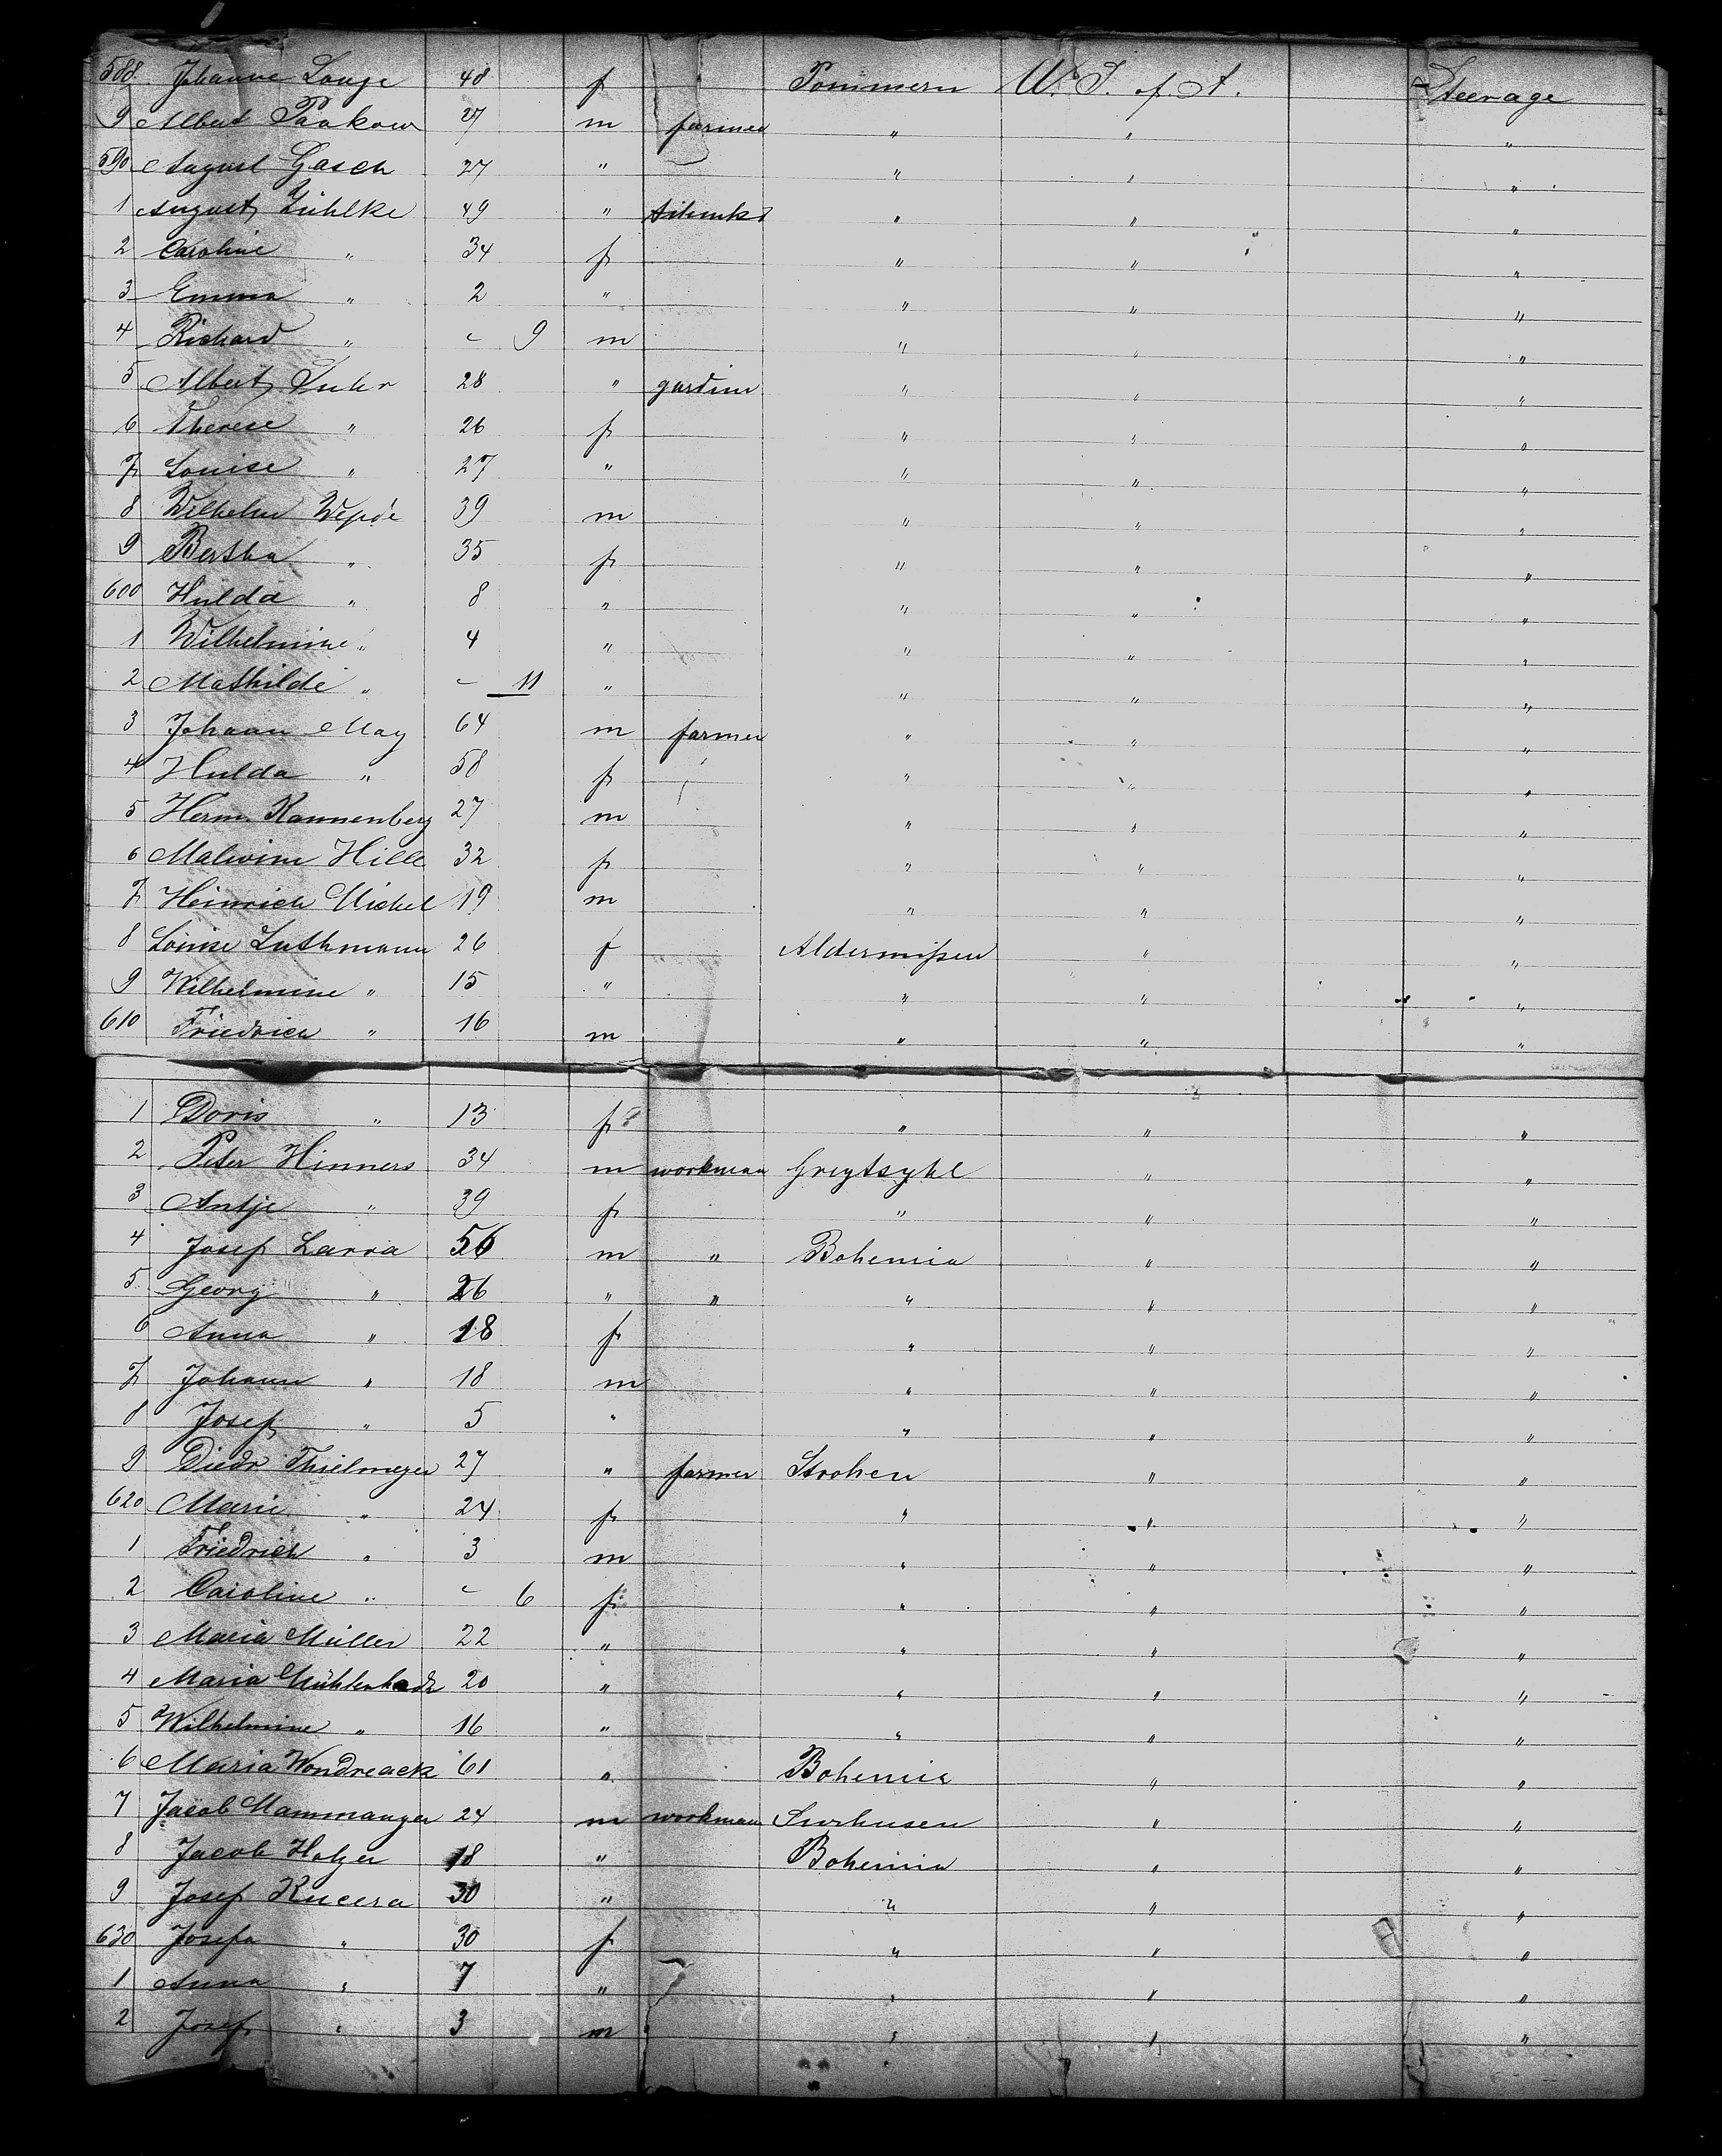 588 Johanne Lange 48 f Pommern U. S. of A. Steerage
9 Albert Pankow 27 m farmer " " "
590 August Gasch 27 " " " "
1 August Zühlke 49 " " " "
2 Caroline " 34 f " " "
3 Emma " 2 " " " "
4 Richard " - 9 m " " "
5 Albert Suhr 28 " " " "
6 Therese " 26 f " " "
7 Louise " 27 " " " "
8 Wilhelm 39 m " " "
9 Bertha " 35 f " " "
600 Hulda " 8 " " " "
1 Wilhelmine " 4 " " " "
2 Mathilde " - 11 " " " "
3 Johann May 64 m farmer " " "
4 Hulda " 58 f " " "
5 Herm. Kannenberg 27 m " " "
6 Malwine Hille 32 f " " "
7 Heinrich Michel 19 m " " "
8 Louise Luthmann 26 f Aldermißen " "
9 Wilhelmine " 15 " " " "
610 Friedrich " 16 m " " "
1 Doris " 13 f " " "
2 Peter Hinners 34 m workman Greytsyhl " "
3 Antje " 39 f " " "
4 Josef Larva 56 m " Bohemia " "
5 Georg " 26 " " " " "
6 Anna " 18 f " " "
7 Johann " 18 m " " "
8 Josef " 5 " " " "
9 Diedr Thielmeyer 27 " farmer Strohen " "
620 Marie " 24 f " " "
1 Friedrich " 3 m " " "
2 Caroline " - 6 f " " "
3 Maria Müller 22 " " " "
4 Maria 20 " " " "
5 Wilhelmine " 16 " " " "
6 Maria Wondreack 61 " Bohemia " "
7 Jacob Mammanger 24 m workman Surhusen " "
8 Jacob Holzer 18 " Bohemia " "
9 Josef Kucera 30 " " " "
630 Josefa " 30 f " " "
1 Anna " 7 " " " "
2 Josef " 3 m " " "